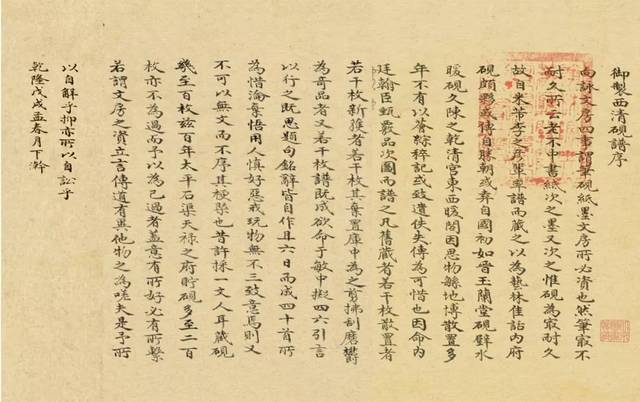 御製西清硯譜序
向詠文房四事謂筆硯紙墨文房所必資也然筆最不
耐久所云老不中書紙次之墨又次之惟硯為最耐久
故自米芾李之彥輩率譜而藏之以為藝林佳話內府
硯頗夥或傳自勝朝或弆自國初如晉玉蘭堂硯璧水
暖硯久陳之乾清宮東西暖閣因思物緐地博散置多
年不有以薈綜稡記或致遺佚失傳為可惜也因命內
廷翰臣甄覈品次圖而譜之凡舊藏者若干枚散置者
若干枚新獲者若干枚其棄置庫中為之剪拂刮磨鬱
為奇品者又若干枚譜既成欲命于敏中擬四六引言
以行之既思題句銘辭皆自作耳六日而成四十首所
為惜淪棄悟用人慎好惡戒玩物無不三致意焉則又
不可以無文而不序其梗槩也昔許採一文人耳藏硯
幾至百枚茲百年太平石渠天祿之府貯硯多至二百
枚亦不為過而予以為己過者蓋意有所好必有所繫
若謂文房之資立言傳道有異他物之為嗟夫是予所
以自解乎抑亦所以自訟乎
乾隆戊戌孟春月下澣